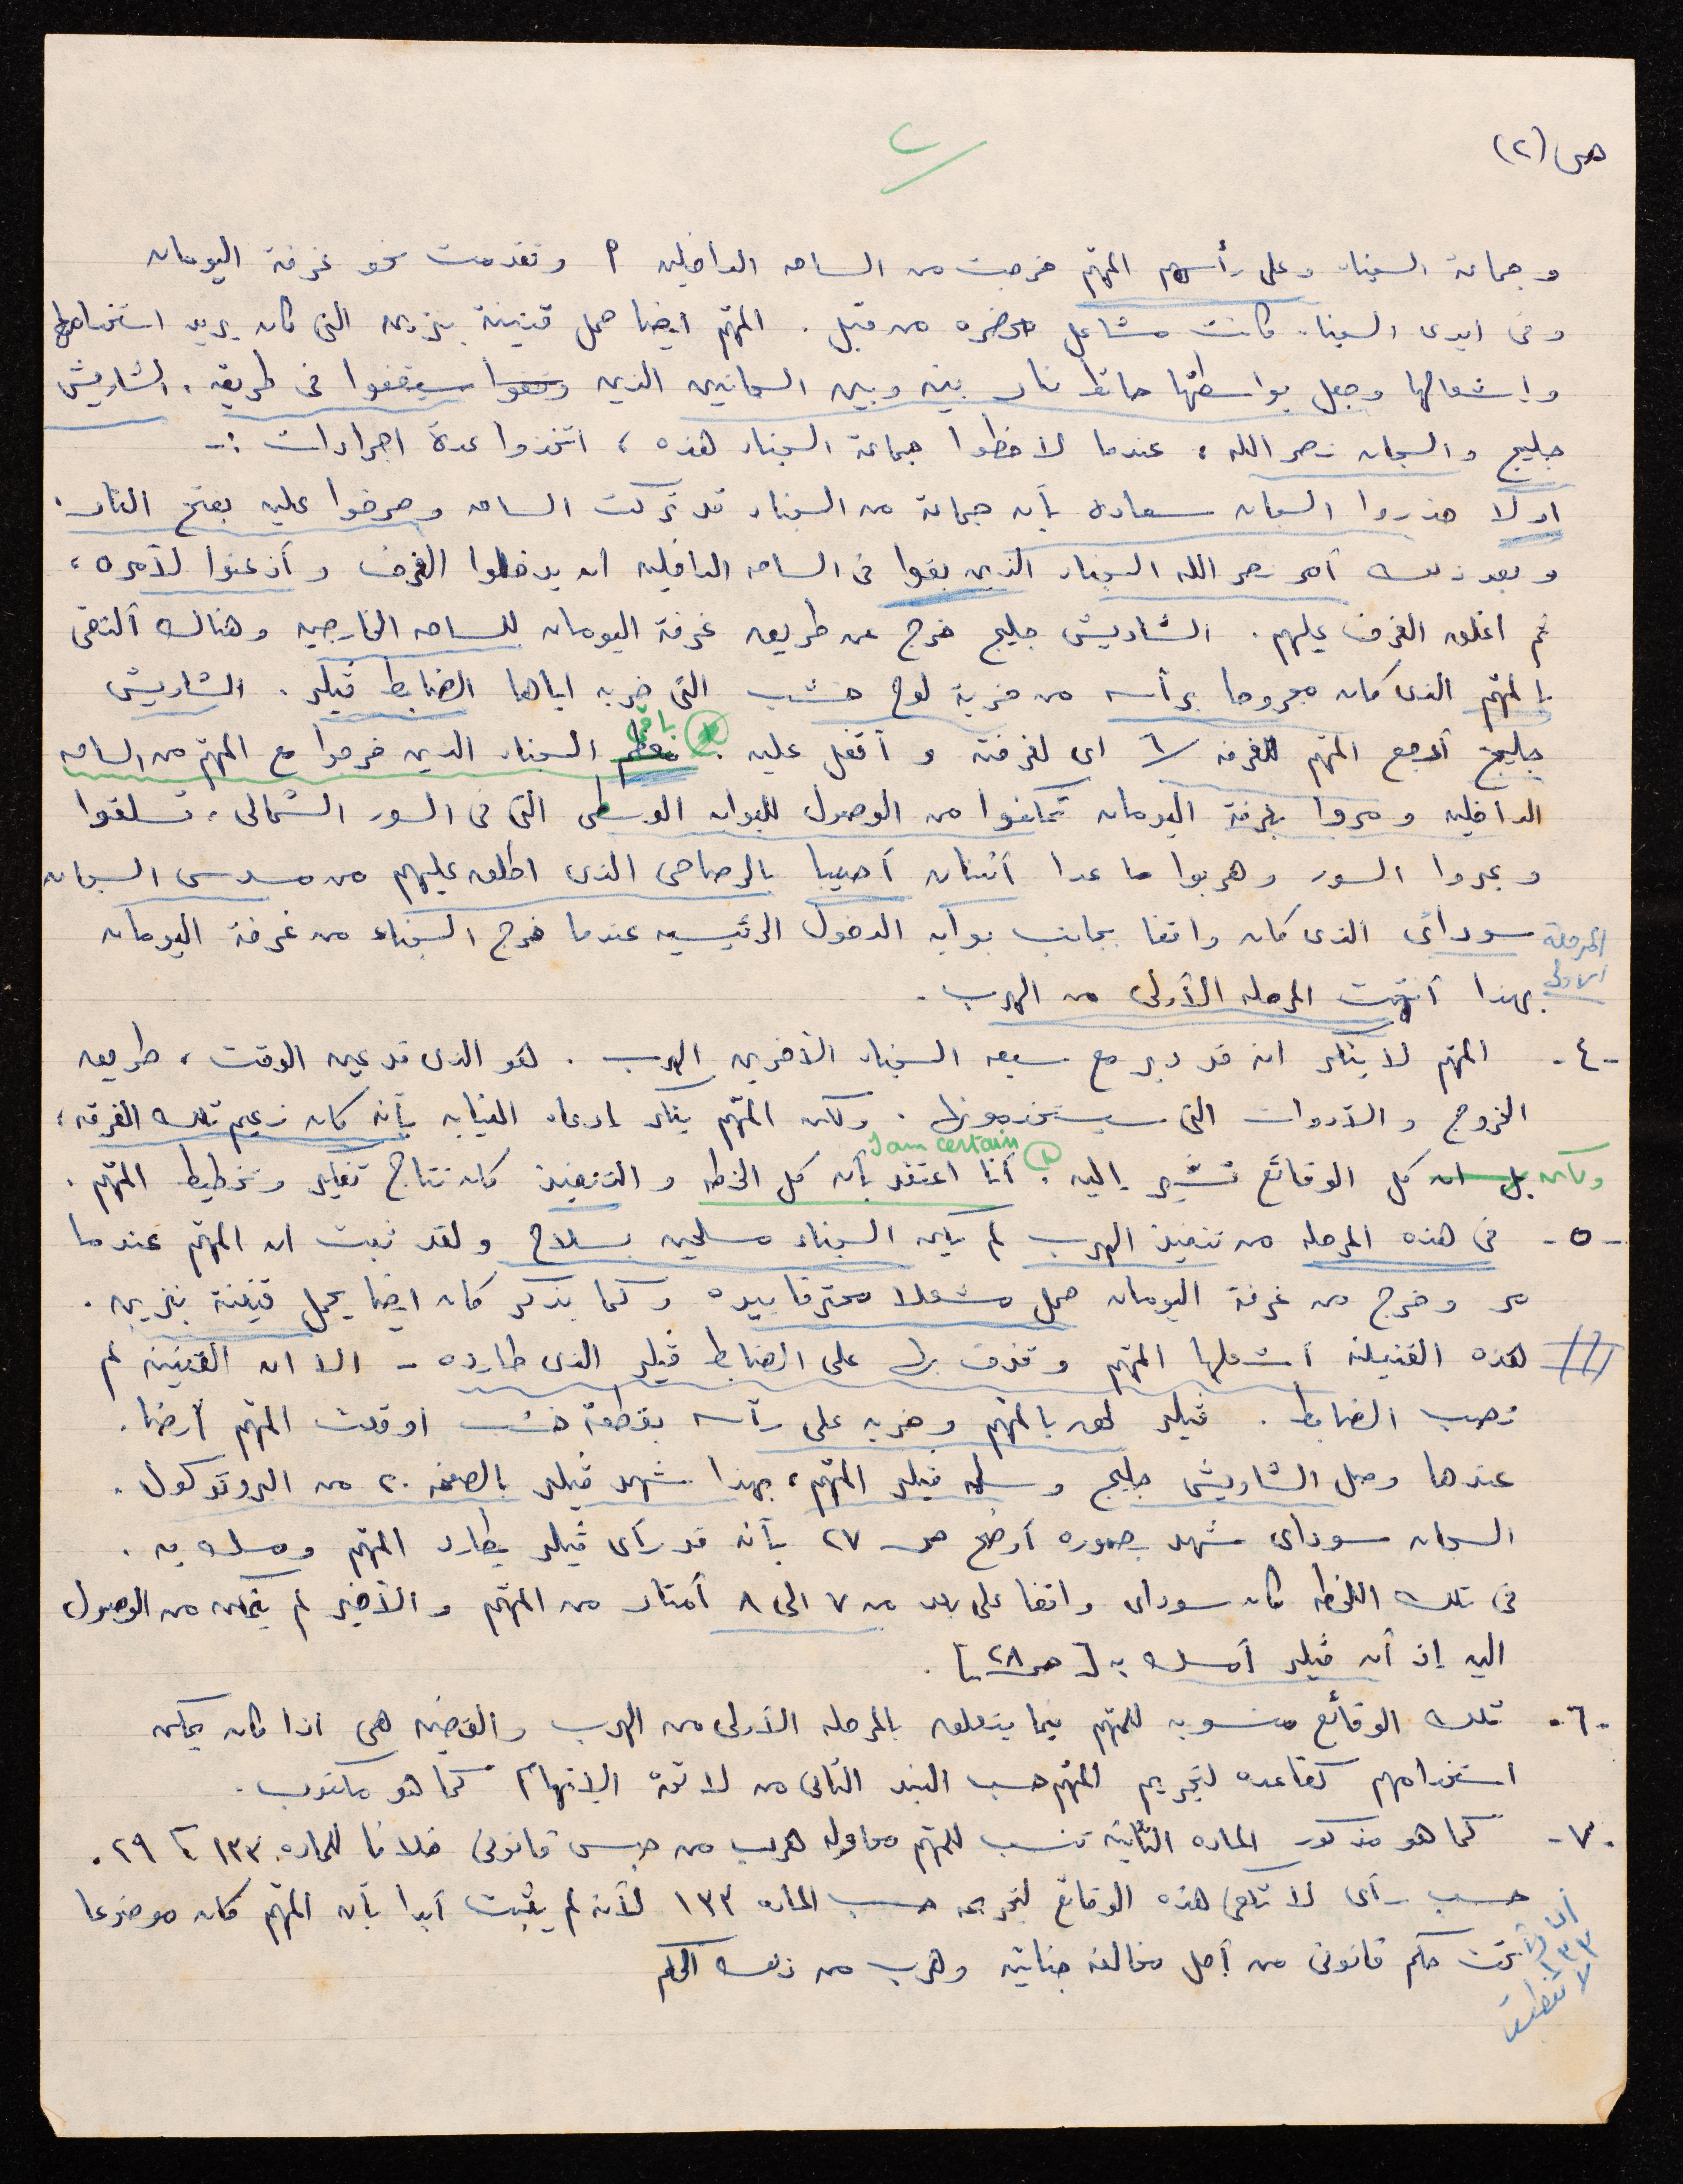 ص (٢)
٢
وجماعة السجناء وعلى رأسهم المتهم خرجت من الساحه الداخليه وتقدمت نحو غرفة اليومان
وفى ايدى السجناء كانت مشاعل محضره من قبل . المتهم ايضا حمل قنينة بنزين التى كان يريد استخدامها
واشعالها وجعل بواسطتها حائط نار بينه وبين السجانين الذين وقفوا سيقفوا فى طريقه . الشاويش
جليج والسجان نصر الله ، عندما لاحظوا جماعة السجناء هذه ، اتخذوا عدة اجراءات :-
اولا حذروا السجان سعاده بأن جماعة من السجناء قد تركت الساحه وصرخوا عليه بفتح النار .
وبعد ذلك أمر نصر الله السجناء الذين بقوا فى الساحه الداخليه ان يدخلوا الغرف وأذعنوا لأمره ،
ثم اغلق الغرف عليهم . الشاويش جليج خرج عن طريق غرفة اليومان للساحه الخارجيه وهناك ألتقى
بالمتهم الذى كان مجروحا برأسه من ضربة لوح خشب التى ضربه اياها الضابط ڤيلر . الشاويش
جليج أرجع المتهم للغرفه ٦ اى لغرفته وأقفل عليه . معظم باقى السجناء الذين خرجوا مع المتهم من الساحه
الداخليه ومروا بغرفة اليومان تمكنوا من الوصول للبوابه الوسطى التى فى السور الشمالى ، تسلقوا
وعبروا السور وهربوا ما عدا أثنان أصيبا بالرصاص الذى اطلق عليهم من مسدس السجان
سوداى الذى كان واقفا بجانب بوابه الدخول الرئيسيه عندما خرج السجناء من غرفة اليومان
المرحلة الاولى
بهذا أنتهت المرحله الأولى من الهرب .
-٤- المتهم لا ينكر انه قد دبر مع سبعه السجناء الأخرين الهرب . هو الذى قد عين الوقت ، طريق
الخروج والأدوات التى سيستخدمونها . ولكن المتهم ينكر ادعاء النيابه بأنه كان زعيم تلك الفرقه ،
I am certain
ولكن بل ان كل الوقائع تشير اليه . أنا اعتقد بأن كل الخطه والتنفيذ كان نتاج تفكير وتخطيط المتهم .
-٥- فى هذه المرحله من تنفيذ الهرب لم يكن السجناء مسلحين بسلاح ولقد ثبت ان المتهم عندما
مر وخرج من غرفة اليومان حمل مشعلا محترقا بيده وكما يذكر كان ايضا يحمل قنينة بنزين .
هذه القنبله أشعلها المتهم وقذف بها على الضابط ڤيلر الذى طارده - الا ان القنينه لم
تصب الضابط . ڤيلر لحق بالمتهم وضربه على رأسه بقطعة خشب اوقعت المتهم أرضا .
عندها وصل الشاويش جليج وسلمه ڤيلر المتهم ، بهذا شهد ڤيلر بالصفحه ٢٠ من البروتوكول .
السجان سوداى شهد بصوره أوضح ص ٢٧ بأنه قد رأى ڤيلر يطارد المتهم ومسك به .
فى تلك اللحظه كان سوداى واقفا على بعد من ٧ الى ٨ أمتار من المتهم والأخير لم يتمكن من الوصول
اليه إذ أن ڤيلر أمسك به [ ص ٢٨ ] .
-٦- تلك الوقائع منسوبه للمتهم فيما يتعلق بالمرحله الأولى من الهرب والقضيه هى اذا كان يمكن
استخدامهم كقاعده لتجريم المتهم حسب البند الثانى من لائحة الاتهام كما هو مكتوب .
-٧- كما هو مذكور الماده الثانيه تنسب للمتهم محاوله هرب من حبس قانونى خلافا للماده ١٣٣ ٢٩ .
حسب رأى لا تكفى هذه الوقائع لتجريمه حسب الماده ١٣٣ لأنه لم يثبت أبدا بأن المتهم كان موضوعا
تحت حكم قانونى من أجل مخالفه جنائيه وهرب من ذلك الحكم
١٣٣
لا تنطبق